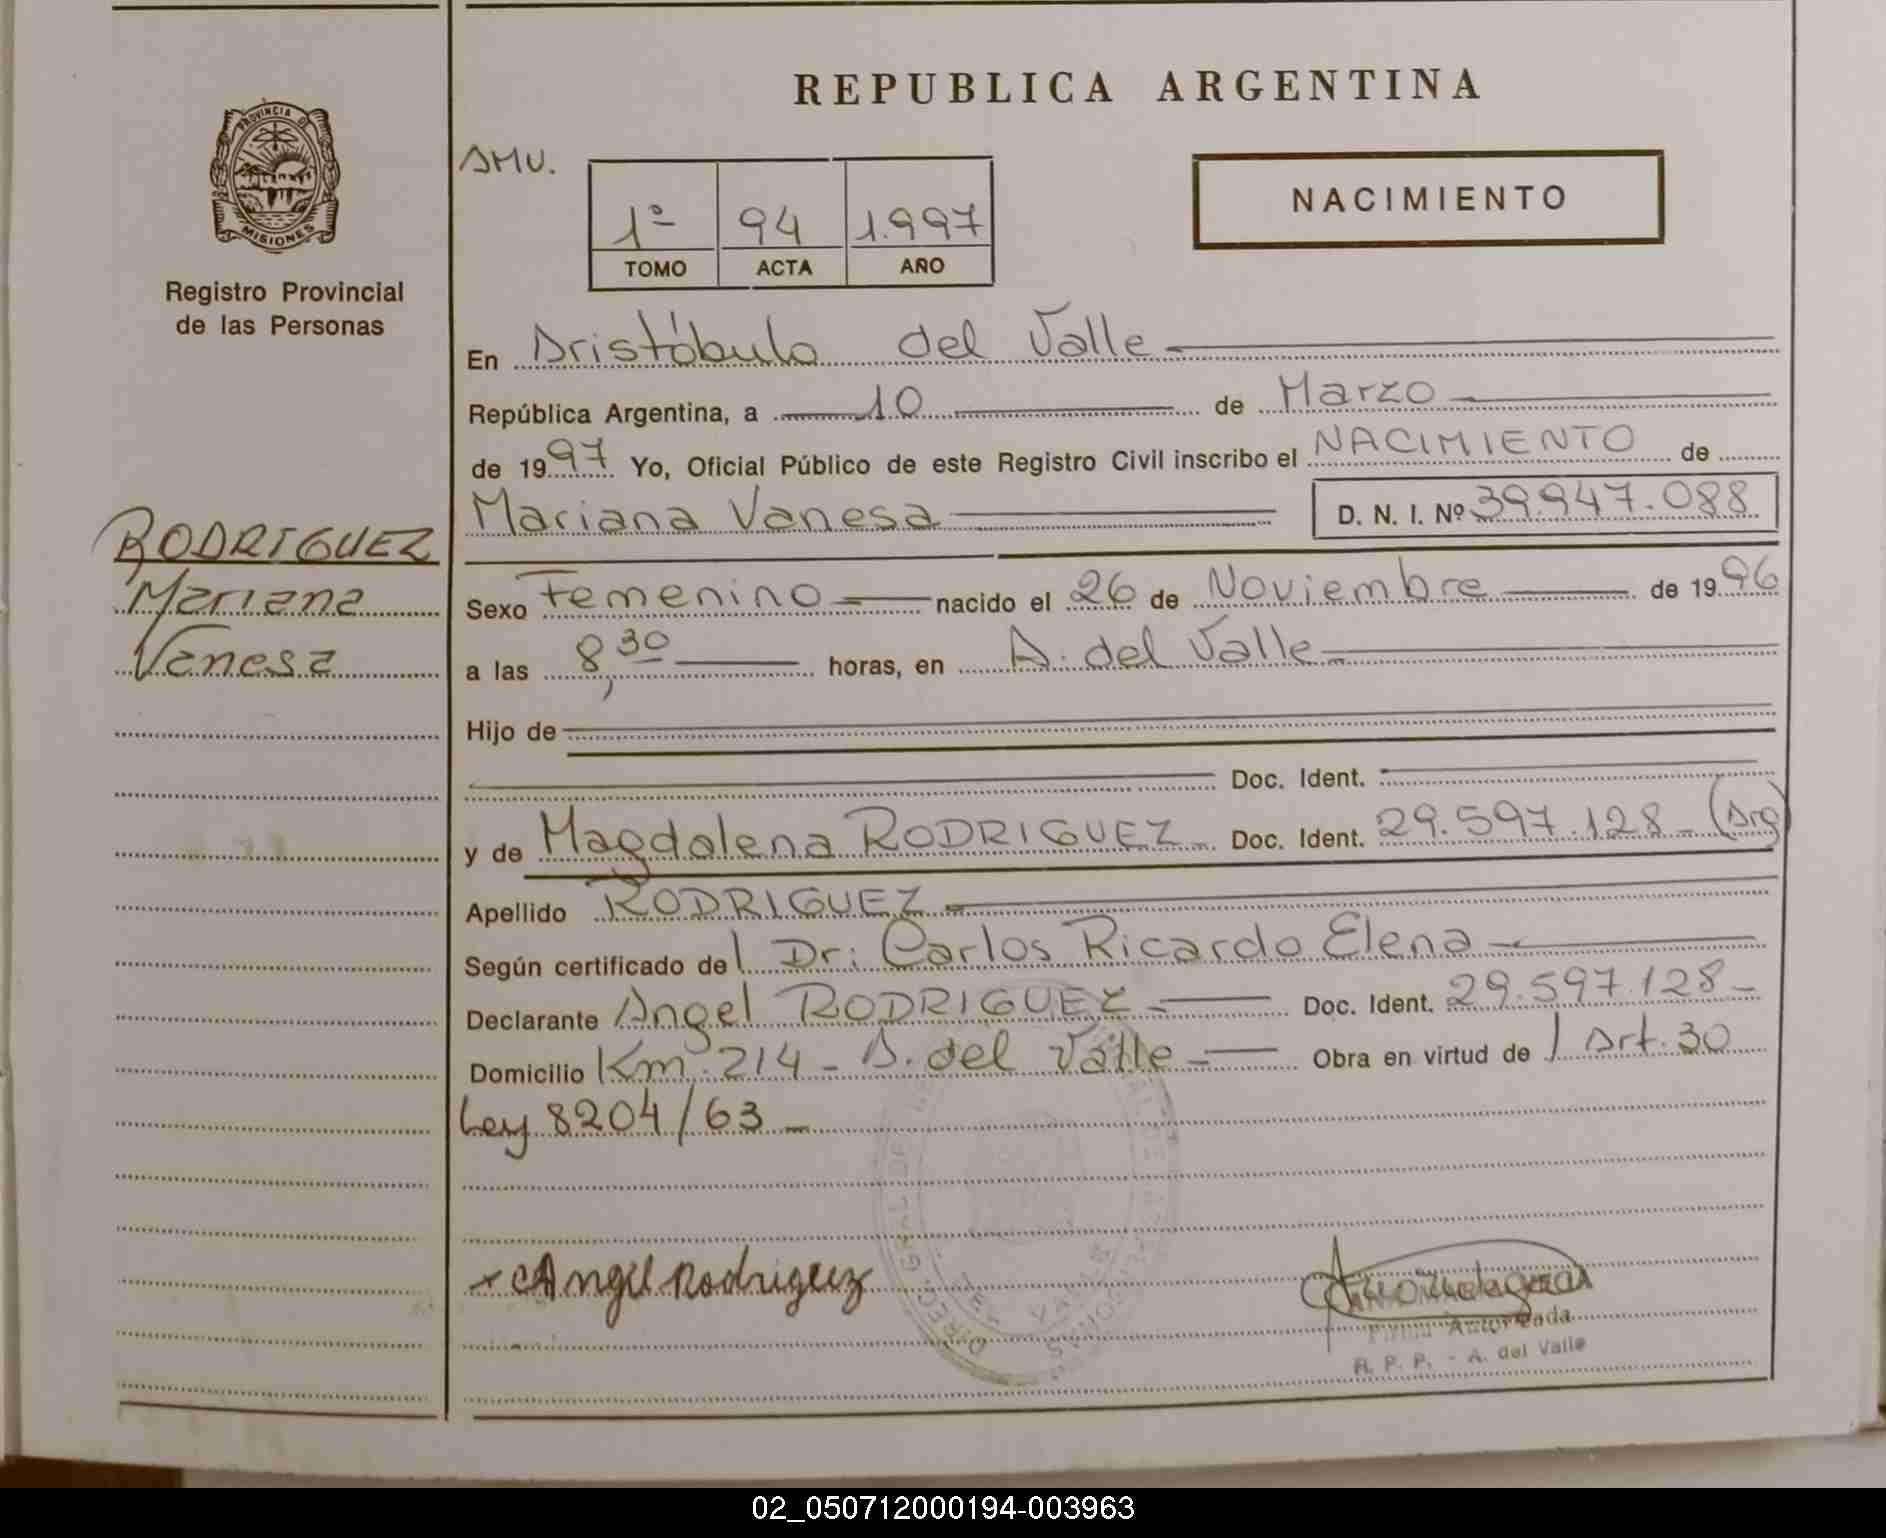 REPUBLICA ARGENTINA
PROVINCIA DE
MISIONES
Registro Provincial
de las Personas
AMV.
NACIMIENTO
1º 94 1.997
TOMO ACTA AÑO
En Aristóbulo del Valle
República Argentina, a 10 de Marzo
de 1997 Yo, Oficial Público de este Registro Civil inscribo el NACIMIENTO de
Mariana Vanesa D. N. I. Nº 39.947.088
RODRIGUEZ
Mariana
Vanesa
Sexo Femenino nacido el 26 de Noviembre de 1996
a las 8,30 horas, en A. del Valle
Hijo de
Doc. Ident.
y de Magdalena RODRIGUEZ Doc. Ident. 29.597.128 - (Arg)
Apellido RODRIGUEZ
Según certificado del Dr: Carlos Ricardo Elena
Declarante Angel RODRIGUEZ Doc. Ident. 29.597.128 -
Domicilio Km. 214 - A. del Valle Obra en virtud de l Art. 30
Ley 8204/63 -
x Angel Rodriguez
Firma Autorizada
R. P. P. - A. del Valle
02_050712000194-003963